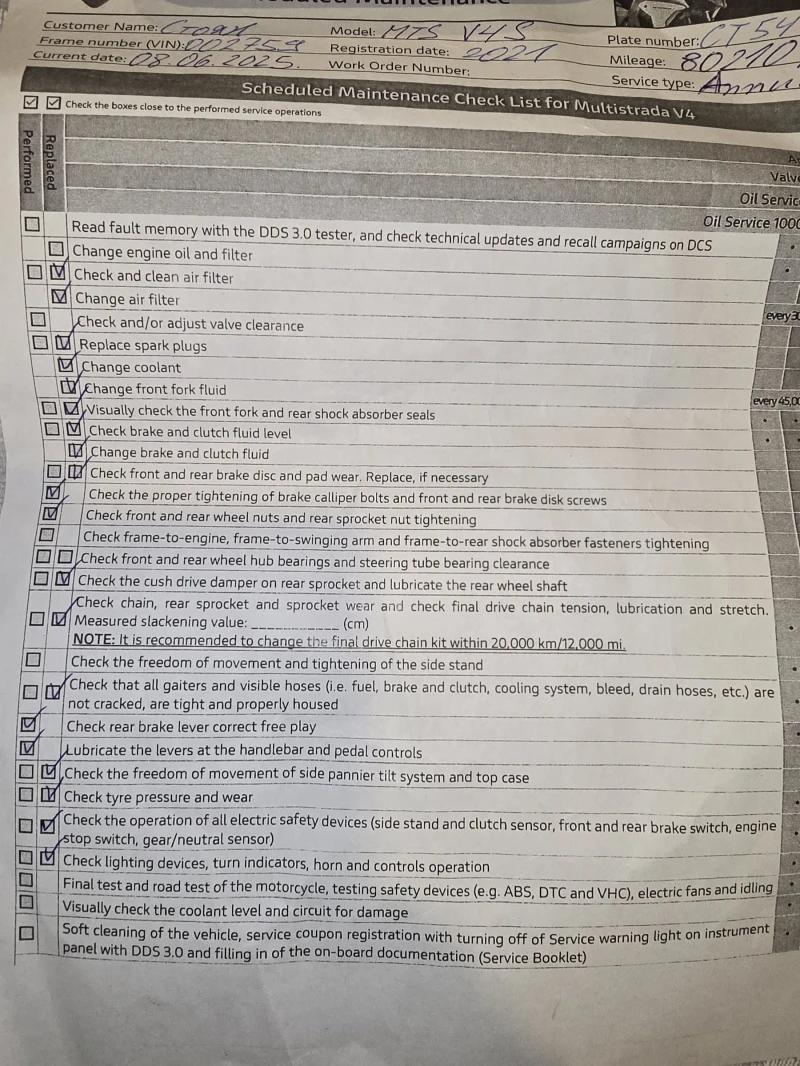 Scheduled Maintenance
Customer Name: Model: MTS V4S Plate number: CT54
Frame number (VIN): 002759 Registration date: 2021 Mileage: 80210
Current date: 08.06.2025. Work Order Number: Service type: Annu
Scheduled Maintenance Check List for Multistrada V4
Check the boxes close to the performed service operations
Performed
Replaced
Valve
Oil Servic
Oil Service 1000
Read fault memory with the DDS 3.0 tester, and check technical updates and recall campaigns on DCS
Change engine oil and filter
Check and clean air filter
Change air filter
Check and/or adjust valve clearance every 30
Replace spark plugs
Change coolant
Change front fork fluid every 45,00
Visually check the front fork and rear shock absorber seals
Check brake and clutch fluid level
Change brake and clutch fluid
Check front and rear brake disc and pad wear. Replace, if necessary
Check the proper tightening of brake calliper bolts and front and rear brake disk screws
Check front and rear wheel nuts and rear sprocket nut tightening
Check frame-to-engine, frame-to-swinging arm and frame-to-rear shock absorber fasteners tightening
Check front and rear wheel hub bearings and steering tube bearing clearance
Check the cush drive damper on rear sprocket and lubricate the rear wheel shaft
Check chain, rear sprocket and sprocket wear and check final drive chain tension, lubrication and stretch.
Measured slackening value: ____________ (cm)
NOTE: It is recommended to change the final drive chain kit within 20,000 km/12,000 mi.
Check the freedom of movement and tightening of the side stand
Check that all gaiters and visible hoses (i.e. fuel, brake and clutch, cooling system, bleed, drain hoses, etc.) are
not cracked, are tight and properly housed
Check rear brake lever correct free play
Lubricate the levers at the handlebar and pedal controls
Check the freedom of movement of side pannier tilt system and top case
Check tyre pressure and wear
Check the operation of all electric safety devices (side stand and clutch sensor, front and rear brake switch, engine
stop switch, gear/neutral sensor)
Check lighting devices, turn indicators, horn and controls operation
Final test and road test of the motorcycle, testing safety devices (e.g. ABS, DTC and VHC), electric fans and idling
Visually check the coolant level and circuit for damage
Soft cleaning of the vehicle, service coupon registration with turning off of Service warning light on instrument
panel with DDS 3.0 and filling in of the on-board documentation (Service Booklet)